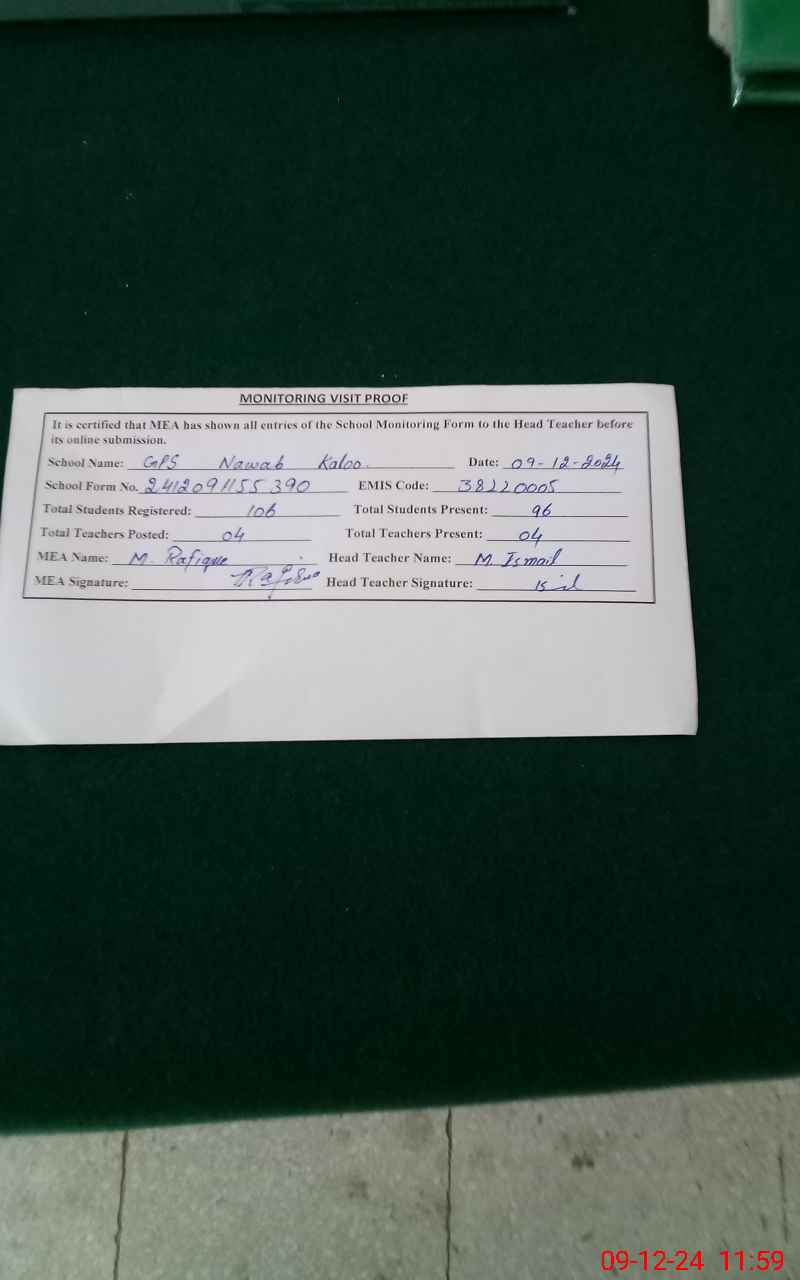 MONITORING VISIT PROOF
It is certified that MEA has shown all entries of the School Monitoring Form to the Head Teacher before
its online submission.
School Name: GPS Nawab Kaloo. Date: 09-12-2024
School Form No. 2412091155390 EMIS Code: 38220005
Total Students Registered: 106 Total Students Present: 96
Total Teachers Posted: 04 Total Teachers Present: 04
MEA Name: M. Rafique Head Teacher Name: M. Ismail
MEA Signature: Head Teacher Signature:
09-12-24 11:59